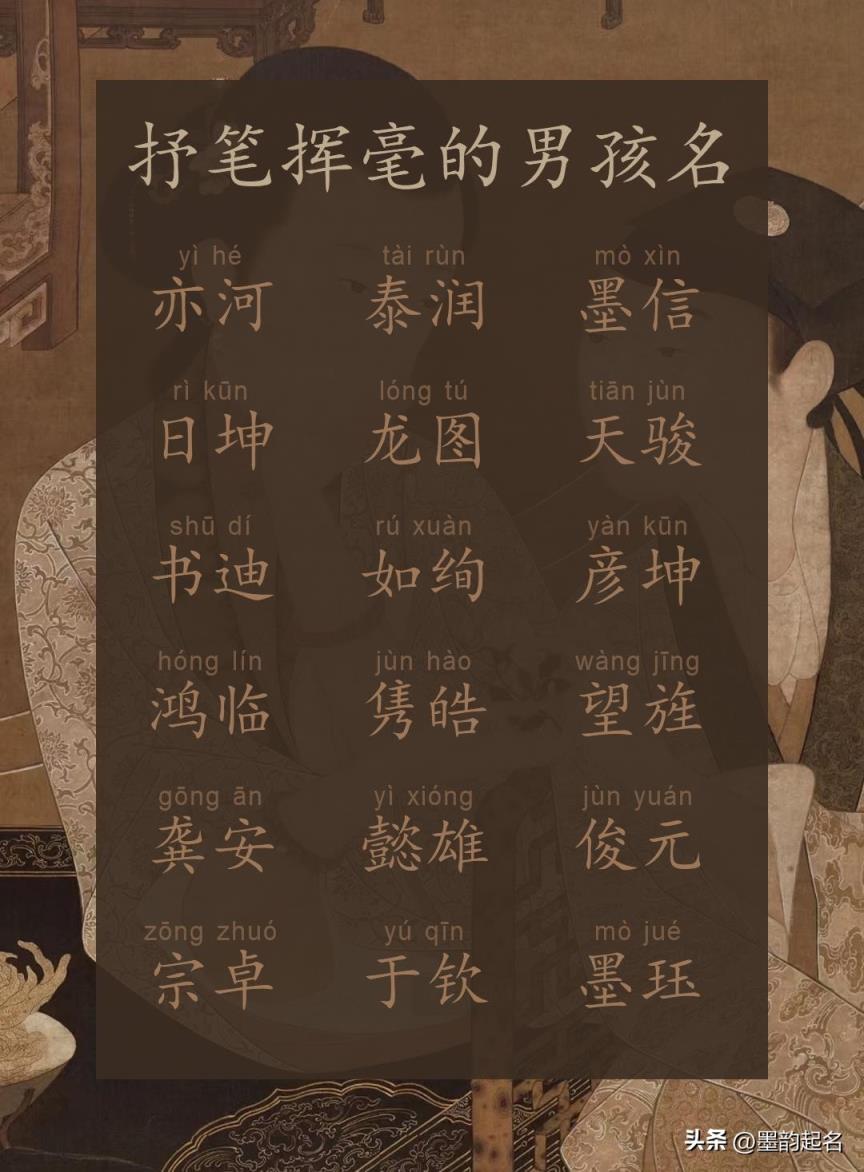 抒笔挥毫的男孩名
yì hé tài rùn mò xìn
亦河 泰润 墨信
rì kūn lóng tú tiān jùn
日坤 龙图 天骏
shū dí rú xuàn yàn kūn
书迪 如绚 彦坤
hóng lín jùn hào wàng jīng
鸿临 隽皓 望旌
gōng ān yì xióng jùn yuán
龚安 懿雄 俊元
zōng zhuó yú qīn mò jué
宗卓 于钦 墨珏
头条 @墨韵起名